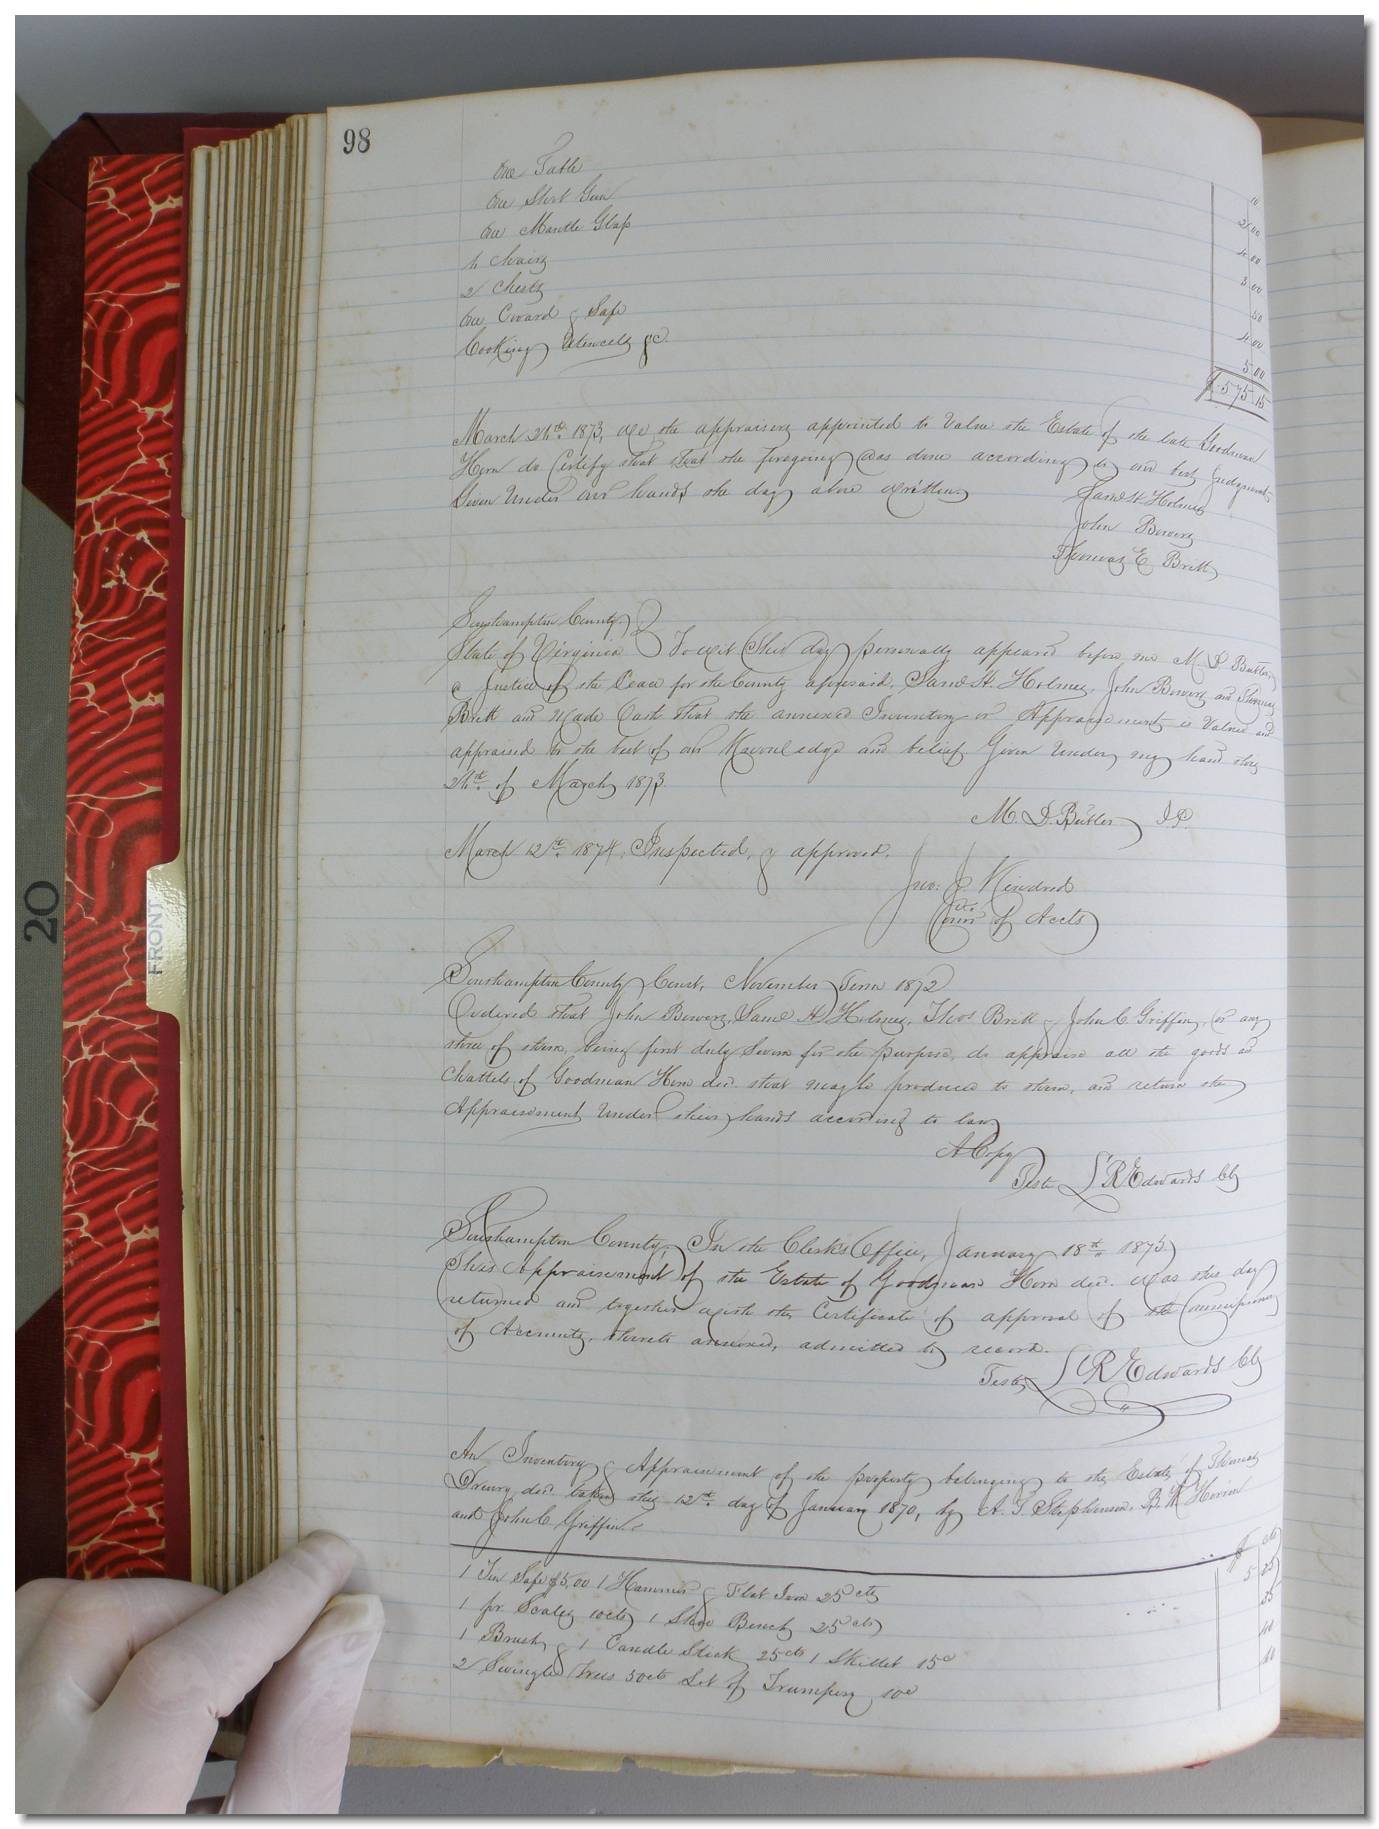 98
One Table 10
One Shot Gun 2.00
One Mantle Glass 4.00
4 chairs 3.00
2 chests 50
One & Safe 4.00
Cooking Utencels &c. 5.00
$575.15
March 24th 1873, We the appraisers appointed to Value the Estate of the late Goodman
Horn do Certify that that the foregoing was done according to our best Judgment
Given Under our hands the day above written.
Saml H Holmes
John Bowers
Thomas E Britt
Southampton County,
State of Virginia To wit This day personally appeared before me M. D Butler,
a Justice of the Peace for the County aforesaid, Saml H. Holmes, John Bowers and Thomas
Britt and Made Oath that the annexed Inventory or Appraisement is Valued and
appraised to the best of our Knowledge and belief. Given Under my hand this
24th of March 1873
M. D. Butler J.P.
March 12th 1874, Inspected, & approved.
Jno: J Kindred
Comr of Accts
Southampton County Court, November Term 1872
Ordered that John Bowers, Saml H Holmes, Thos Britt & John C Griffin, or any
three of them, being first duly Sworn for the purpose, do appraise all the goods and
Chattels of Goodman Horn dec. that may be produced to them, and return the
Appraisement Under their hands according to law
A Copy
Teste L R Edwards Clk
Southampton County, In the Clerk's Office, January 18th 1875.
This Appraisement of the Estate of Goodman Horn dec. was this day
returned and together with the Certificate of approval of the Commissioner
of Accounts, thereto annexed, admitted to record.
Teste L R Edwards Clk
An Inventory & Appraisement of the property belonging to the Estate of Thomas
Drewry dec. taken this 12th day of January 1870, by A. T Stephenson, B. W
and John C Griffin.
$ cts
1 Tin Safe $5.00 1 Hammer & Flat Iron 25 cts 5 25
1 pr Scales 10cts 1 Shoe Bench 25 cts 35
1 Brush & 1 Candle Stick 25cts 1 Skillet 15c 40
2 Swingle Trees 50cts Lot of Trumpery 10c